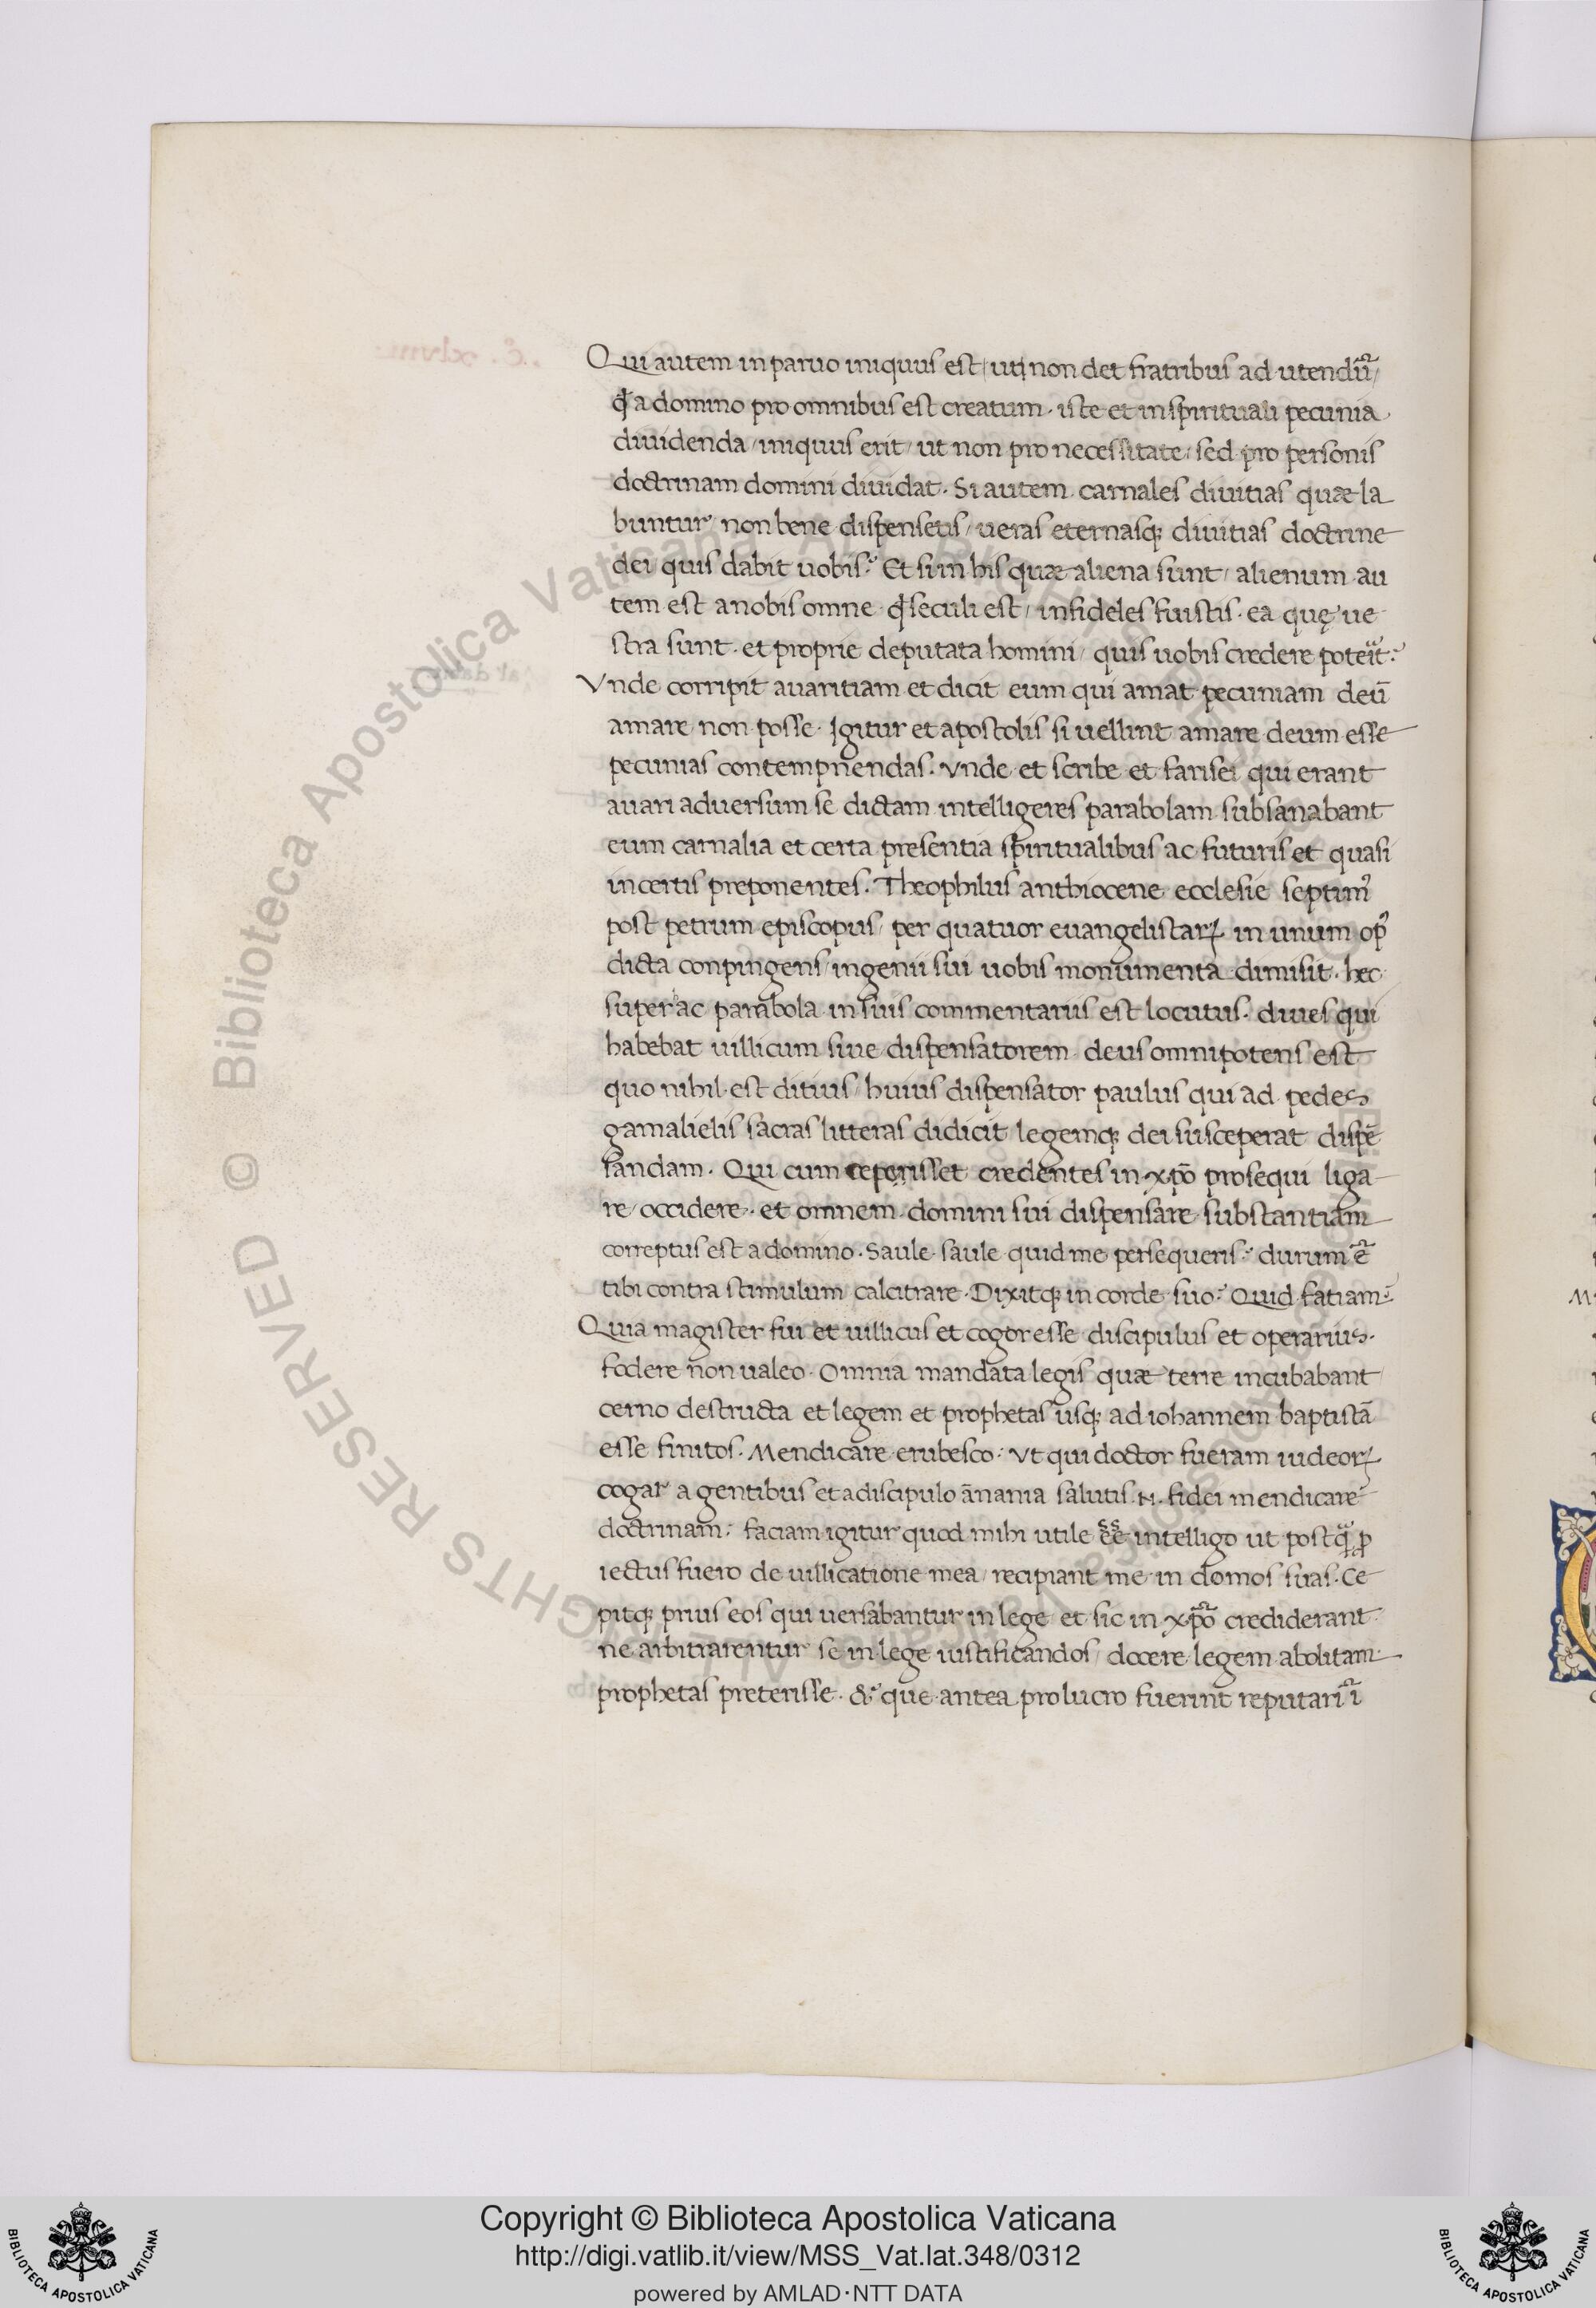 Qui autem in paruo iniquus est / uti non det fratribus ad utendū /
qđ a domino pro omnibus est creatum · iste et in spirituali pecunia
diuidenda / iniquus erit / ut non pro necessitate / sed pro personis
doctrinam domini diuidat · Si autem carnales diuitias quæ la
buntur non bene dispensetis / ueras eternasq; diuitias doctrine
dei quis dabit uobis? Et si in his quæ aliena sunt / alienum au
tem est a nobis omne qđ seculi est / infideles fuistis · ea quę ue
stra sunt · et proprie deputata homini / quis uobis credere poterit?
Vnde corripit auaritiam et dicit eum qui amat pecuniam deū
amare non posse · Igitur et apostolis si uellint amare deum esse
pecunias contempnendas · Vnde et scribe et farisei qui erant
auari aduersum se dictam intelligeres parabolam subsanabant
eum carnalia et certa presentia spiritualibus ac futuris et quasi
incertis preponentes · Theophilus anthiocene ecclesie septim᾽
post petrum episcopus / per quatuor euangelistarꝝ in unum op᾽
dicta conpingens / ingenii sui uobis monumenta dimisit · hec
super hac parabola in suis commentariis est locutus · diues qui
habebat uillicum siue dispensatorem deus omnipotens est
quo nihil est ditius / huius dispensator paulus qui ad pedes
gamalielis sacras litteras didicit legemq; dei susceperat dispē
sandam · Qui cum cepisset credentes in xpō prosequi liga
re / occidere · et omnem domini sui dispensare substantiam
correptus est a domino · Saule saule quid me persequeris? durum ē
tibi contra stimulum calcitrare · Dixitq; in corde suo? Quid fatiam?
Quia magister fui et uillicus et cogor esse discipulus et operarius ·
fodere non ualeo · Omnia mandata legis quæ terre incubabant
cerno destructa et legem et prophetas usq; ad iohannem baptistā
esse finitos · Mendicare erubesco: Vt qui doctor fueram iudeorꝝ
cogar a gentibus et a discipulo ānania salutis · N · fidei mendicare
doctrinam: faciam igitur quod mihi utile ēē intelligo ut postq̄ p
iectus fuero de uillicatione mea / recipiant me in domos suas · Ce
pitq; prius eos qui uersabantur in lege et sic in xpō crediderant
ne arbitrarentur se in lege iustificandos / docere legem abolitam
prophetas preterisse · & que antea pro lucro fuerint reputari ī
Copyright © Biblioteca Apostolica Vaticana
http://digi.vatlib.it/view/MSS_Vat.lat.348/0312
powered by AMLAD·NTT DATA
BIBLIOTECA APOSTOLICA VATICANA
BIBLIOTECA APOSTOLICA VATICANA